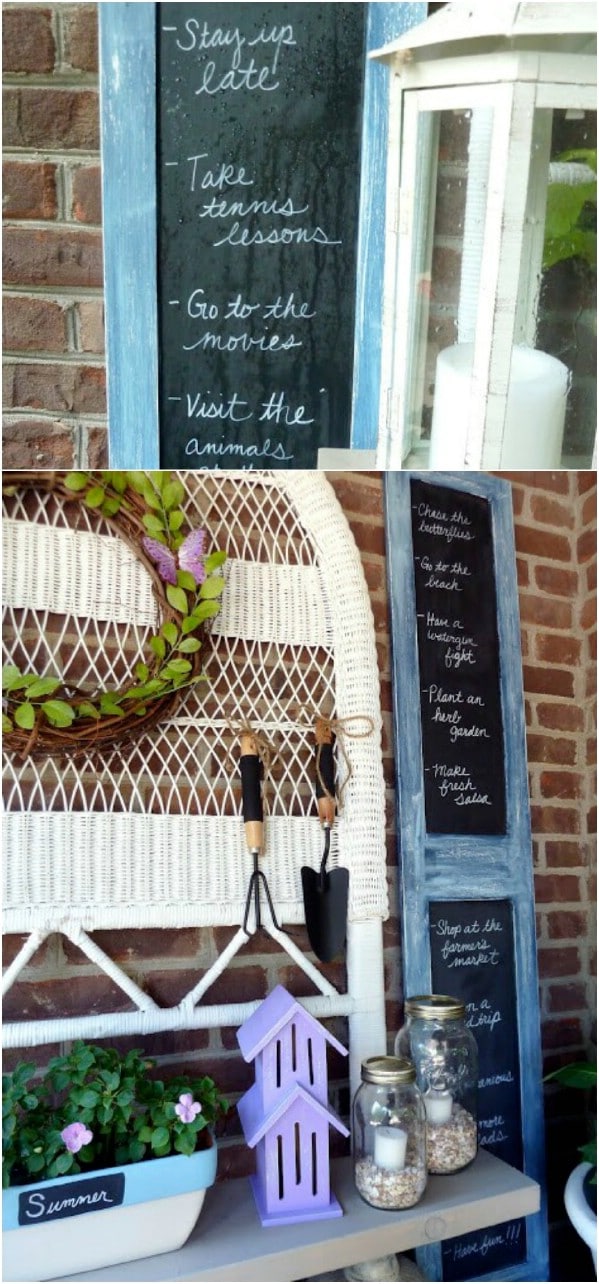 - Stay up
late
- Take
tennis
lessons
- Go to the
movies
- Visit the
animals
- Chase the
butterflies
- Go to the
beach
- Have a
watergun
fight
- Plant an
herb
garden
- Make
fresh
salsa
- Shop at the
farmer's
market
a
more
- Have fun!!!
Summer